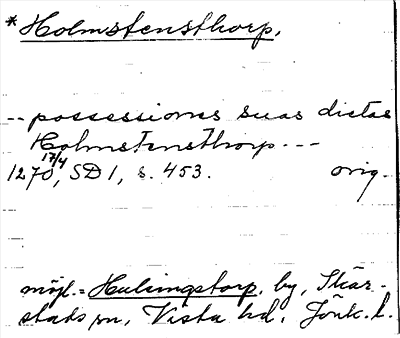 *Holmstensthorp.
-- possessiones suas dictas
Holmstensthorp ---
1270 17/4, SD 1, s. 453. orig.
möjl. = Hulingstorp, by, Skär-
stads sn, Vista hd, Jönk. l.